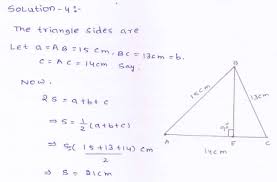 Solution-4:-
The triangle sides are
Let a = AB = 15 cm, BC = 13cm = b.
C = AC = 14cm Say.
Now.
2S = a+b+c
⇒ S = 1/2 (a+b+c)
⇒ S = (15+13+14)/2 cm
⇒ S = 21cm
B
15cm
13cm
90°
A
E
C
14cm